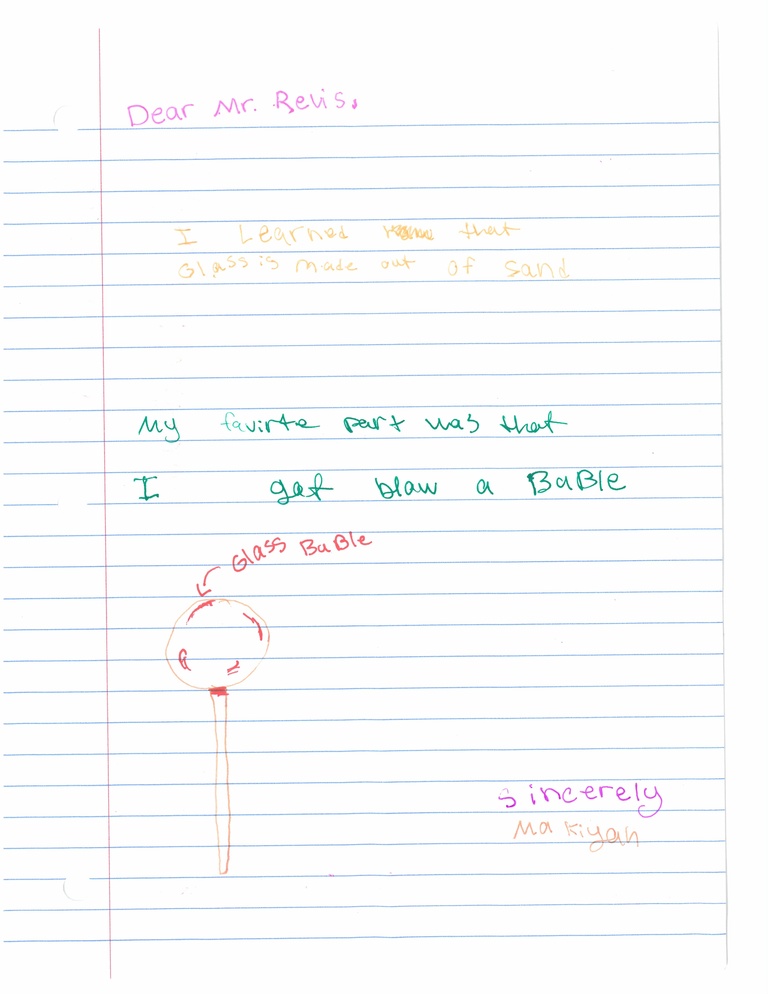 Dear Mr. Revis.
I Learned that
Glass is made out of sand
My favirte part was that
I get blaw a BaBle
Glass BaBle
Sincerely
Makiyah